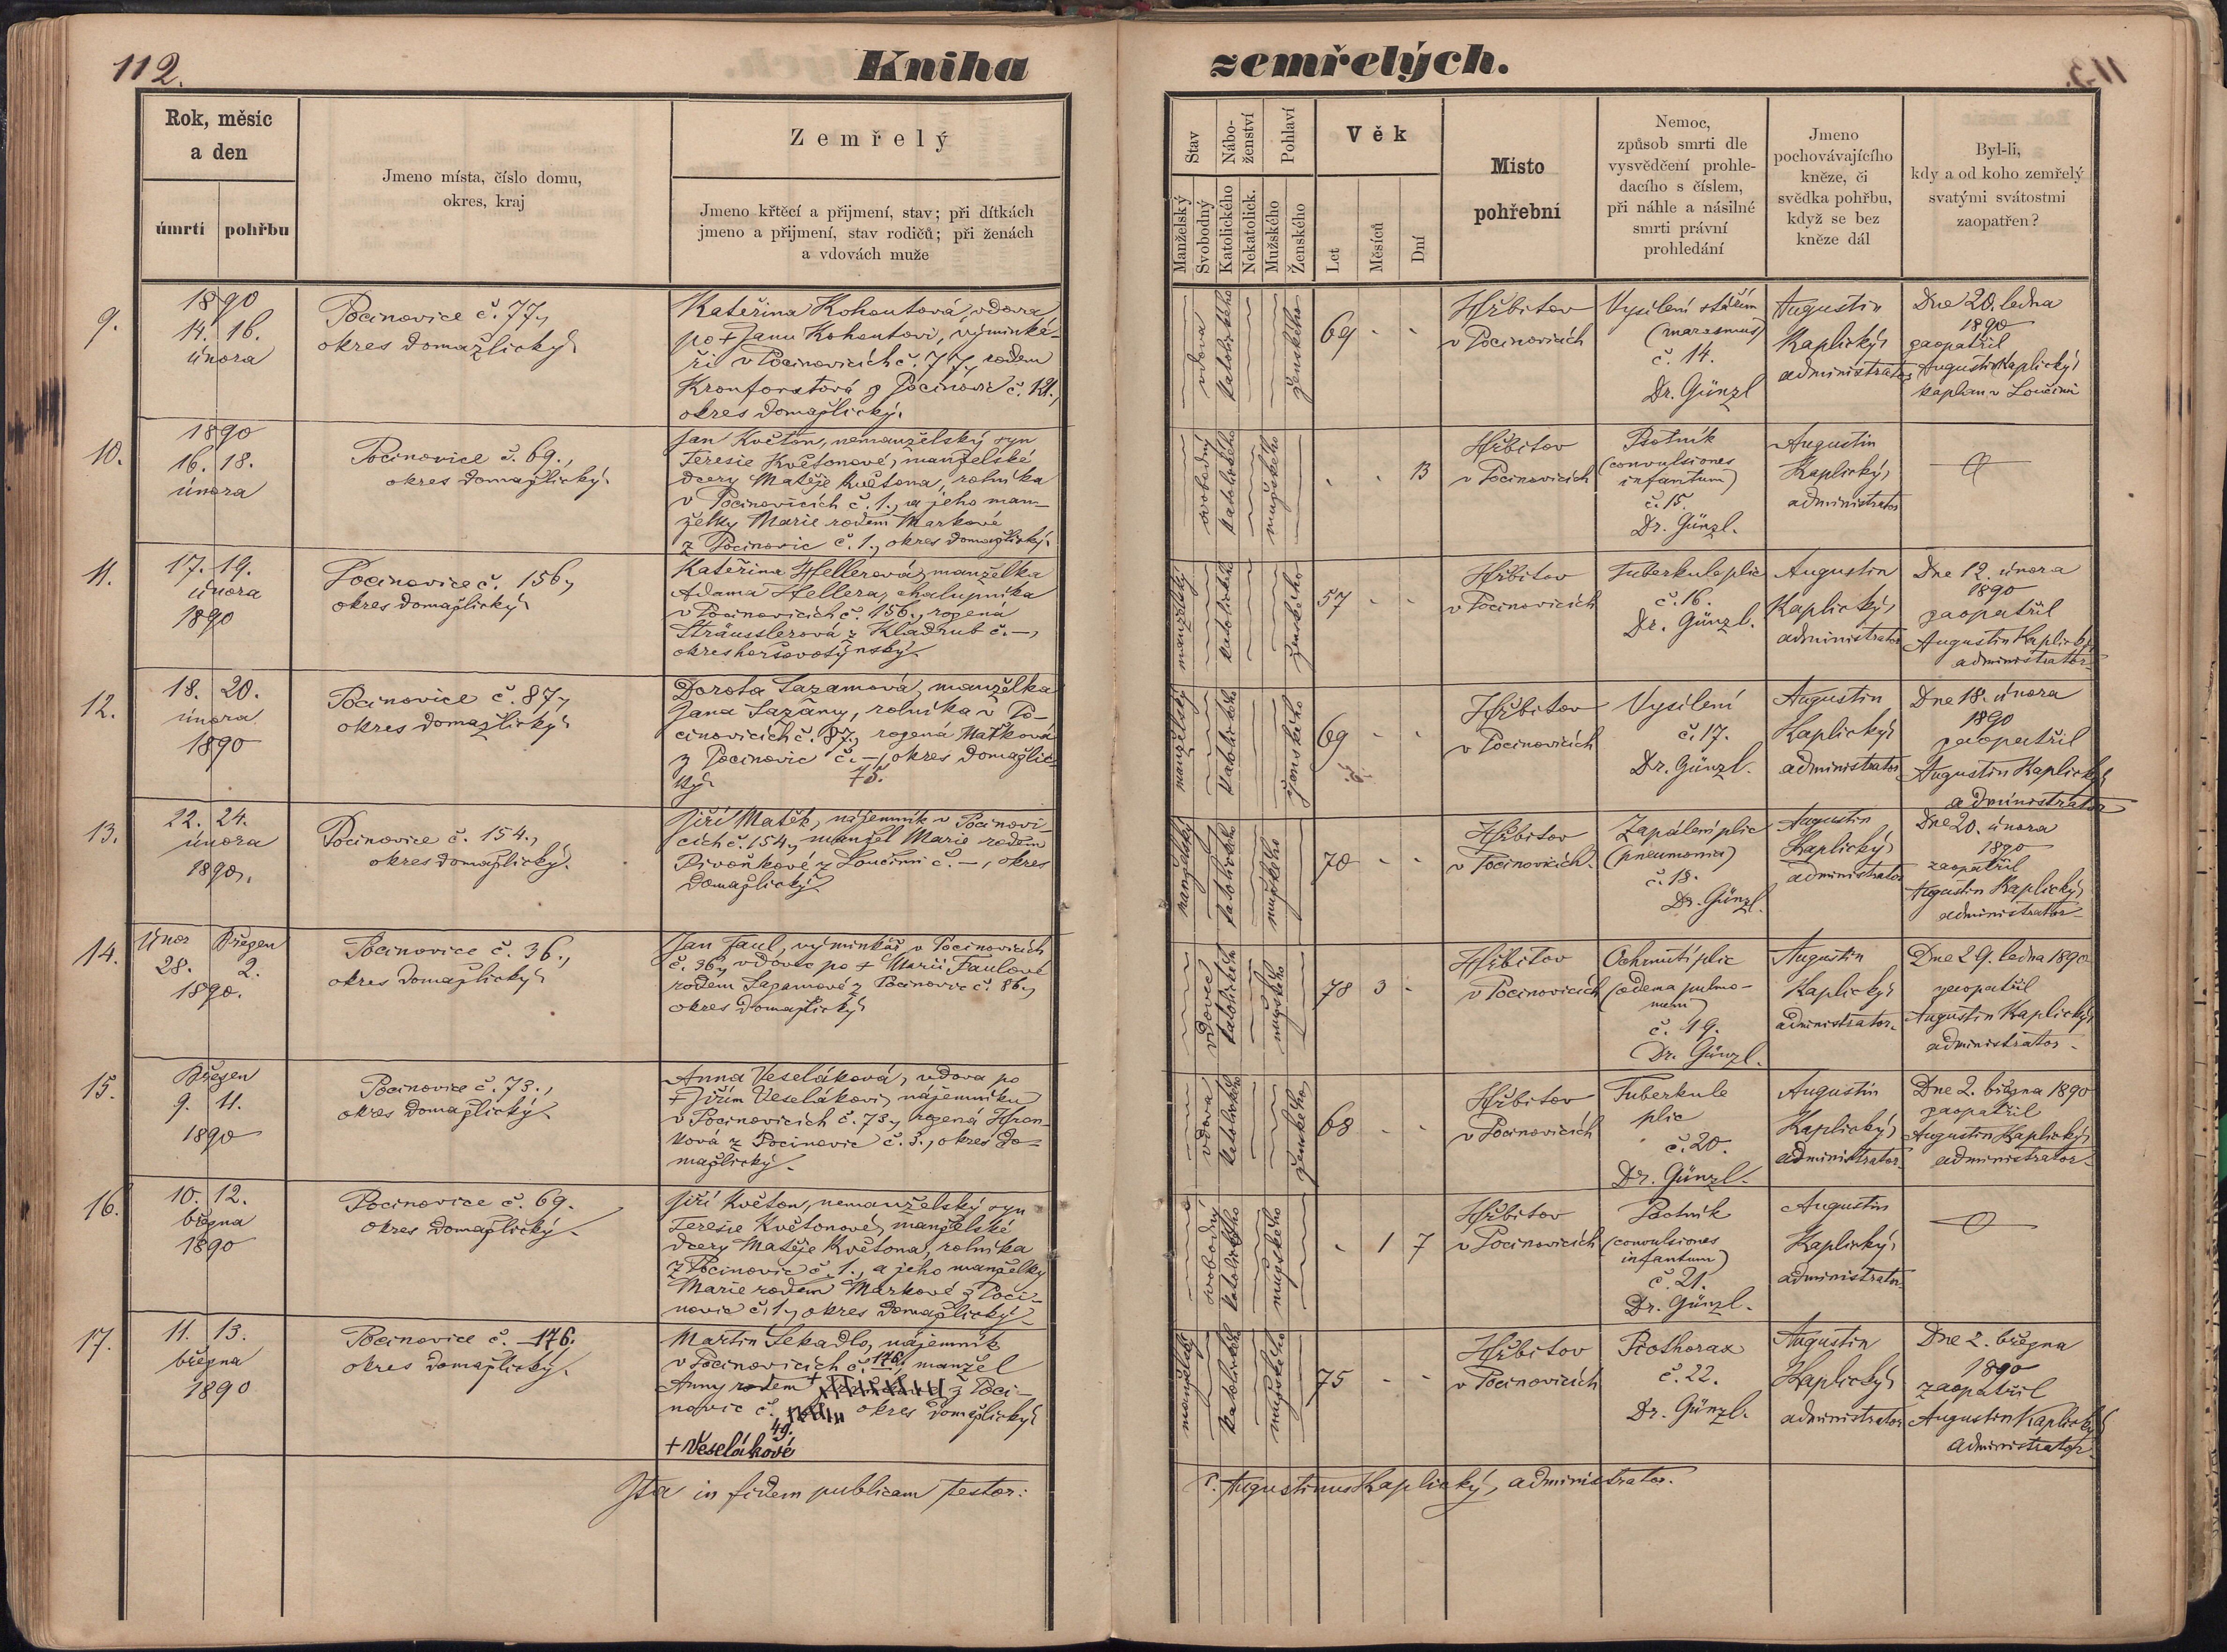 112.
Kniha
zemřelých.
113.
Rok, měsíc
a den
úmrtí
pohřbu
Jmeno místa, číslo domu,
okres, kraj
Zemřelý
Jmeno křtěcí a přijmení, stav; při dítkách
jmeno a přijmení, stav rodičů; při ženách
a vdovách muže
Stav
Nábo-
ženství
Pohlaví
Manželský
Svobodný
Katolického
Nekatolick.
Mužského
Ženského
Věk
Let
Měsíců
Dní
Místo
pohřební
Nemoc,
způsob smrti dle
vysvědčení prohle-
dacího s číslem,
při náhle a násilné
smrti právní
prohledání
Jmeno
pochovávajícího
kněze, či
svědka pohřbu,
když se bez
kněze dál
Byl-li,
kdy a od koho zemřelý
svatými svátostmi
zaopatřen?
9.
1890
14. 16.
února
Pocinovice č. 77.,
okres domažlický.
Kateřina Kohoutová, vdova
po + Janu Kohoutovi, výminká-
ři v Pocinovicích č. 77., rodem
Kronforstová z Pocinovic č. 121.,
okres domažlický.
vdova
katolického
ženského
69 - -
Hřbitov
v Pocinovicích
Vysílení stářím
(marasmus)
č. 14.
Dr. Günzl
Augustin
Kaplický,
administrator
Dne 20. ledna
1890
zaopatřil
Augustin Kaplický,
kaplan v Loučimi
10.
1890
16. 18.
února
Pocinovice č. 69.,
okres domažlický.
Jan Květon, nemanželský syn
Teresie Květonové, manželské
dcery Matěje Květona, rolníka
v Pocinovicích č. 1., a jeho man-
želky Marie rodem Markové
z Pocinovic č. 1., okres domažlický.
svobodný
katolického
mužského
- - 13
Hřbitov
v Pocinovicích
Psotník
(convulsiones
infantum)
č. 15.
Dr. Günzl.
Augustin
Kaplický,
administrator
11.
17. 19.
února
1890
Pocinovice č. 156.,
okres domažlický.
Kateřina Hellerová, manželka
Adama Hellera, chalupníka
v Pocinovicích č. 156., rozená
Sträusslerová z Kladrub č. -,
okres horšovotýnský.
manželský
katolického
ženského
57 - -
Hřbitov
v Pocinovicích
Tuberkule plic
č. 16.
Dr. Günzl.
Augustin
Kaplický,
administrator
Dne 12. února
1890
zaopatřil
Augustin Kaplický,
administrator
12.
18. 20.
února
1890
Pocinovice č. 87.,
okres domažlický.
Dorota Sazamová, manželka
Jana Sazamy, rolníka v Po-
cinovicích č. 87., rozená Matková
z Pocinovic č. -, okres domažlic-
ký. 75.
manželský
katolického
ženského
69 - -
Hřbitov
v Pocinovicích
Vysílení
č. 17.
Dr. Günzl.
Augustin
Kaplický,
administrator
Dne 18. února
1890
zaopatřil
Augustin Kaplický,
administrator
13.
22. 24.
února
1890.
Pocinovice č. 154.,
okres domažlický.
Jiří Matěk, nájemník v Pocinovi-
cích č. 154., manžel Marie rodem
Pivoňkové z Loučimi č. -, okres
domažlický.
manželský
katolického
mužského
70 - -
Hřbitov
v Pocinovicích.
Zapálení plic
(pneumonia)
č. 18.
Dr. Günzl.
Augustin
Kaplický,
administrator
Dne 20. února
1890
zaopatřil
Augustin Kaplický,
administrator
14.
Únor Březen
28. 2.
1890.
Pocinovice č. 36.,
okres domažlický.
Jan Faul, výminkář v Pocinovicích
č. 36., vdovec po + Marii Faulové
rodem Sazamové z Pocinovic č. 86.,
okres domažlický
vdovec
katolického
mužského
78 3 -
Hřbitov
v Pocinovicích
Ochrnutí plic
(oedema pulmo-
num)
č. 19.
Dr. Günzl.
Augustin
Kaplický,
administrator.
Dne 29. ledna 1890
zaopatřil
Augustin Kaplický,
administrator.
15.
Březen
9. 11.
1890
Pocinovice č. 73.,
okres domažlický.
Anna Veseláková, vdova po
+ Jiřím Veselákovi, nájemníku
v Pocinovicích č. 73., rozená Hran-
ková z Pocinovic č. 3., okres do-
mažlický.
vdova
katolického
ženského
68 - -
Hřbitov
v Pocinovicích
Tuberkule
plic
č. 20.
Dr. Günzl.
Augustin
Kaplický,
administrator
Dne 2. března 1890
zaopatřil
Augustin Kaplický,
administrator
16.
10. 12.
března
1890
Pocinovice č. 69.
okres domažlický.
Jiří Květon, nemanželský syn
Teresie Květonové, manželské
dcery Matěje Květona, rolníka
z Pocinovic č. 1., a jeho manželky
Marie rodem Markové z Poci-
novic č. 1., okres domažlický.
svobodný
katolického
mužského
- 1 7
Hřbitov
v Pocinovicích
Psotník
(convulsiones
infantum)
č. 21.
Dr. Günzl.
Augustin
Kaplický,
administrator
17.
11. 13.
března
1890
Pocinovice č. 176.
okres domažlický.
Martin Sekadlo, nájemník
v Pocinovicích č. 176. manžel
Anny rodem + z Poci-
novic č. okres domažlický
49.
+ Veselákové
manželský
katolického
mužského
75 - -
Hřbitov
v Pocinovicích
Piothorax
č. 22.
Dr. Günzl.
Augustin
Kaplický,
administrator
Dne 2. března
1890
zaopatřil
Augustin Kaplický,
administrator.
Ita in fidem publicam testor:
P. Augustinus Kaplický, administrator.